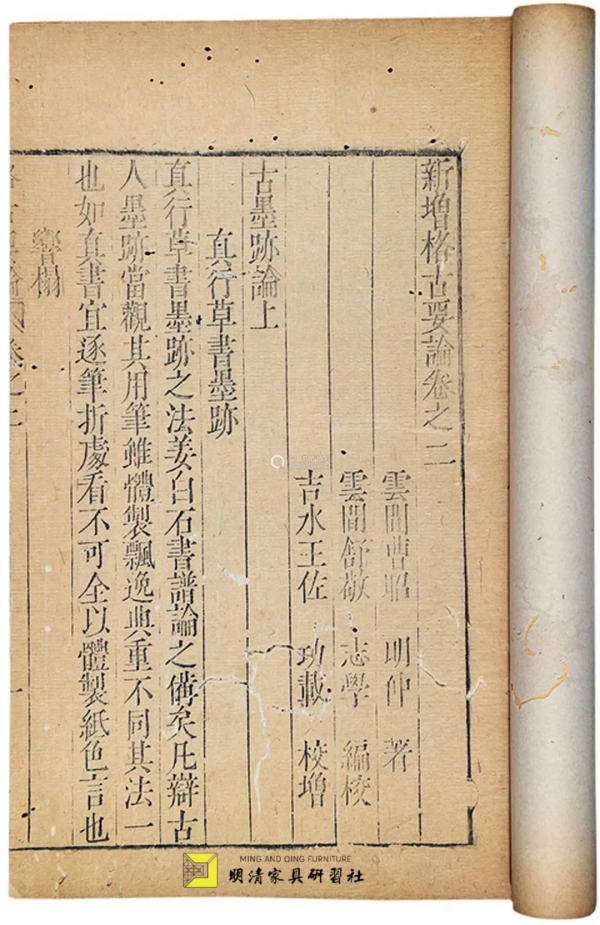 新增格古要論卷之二
雲間曹昭 明仲 著
雲間舒敏 志學 編校
吉水王佐 功載 校增
古墨跡論上
真行草書墨跡
真行草書墨跡之法姜白石書譜論之備矣凡辯古
人墨跡當觀其用筆雖體製飄逸典重不同其法一
也如真書宜逐筆折處看不可全以體製紙色言也
響榻
論 卷之二
MING AND QING FURNITURE
明清家具研習社